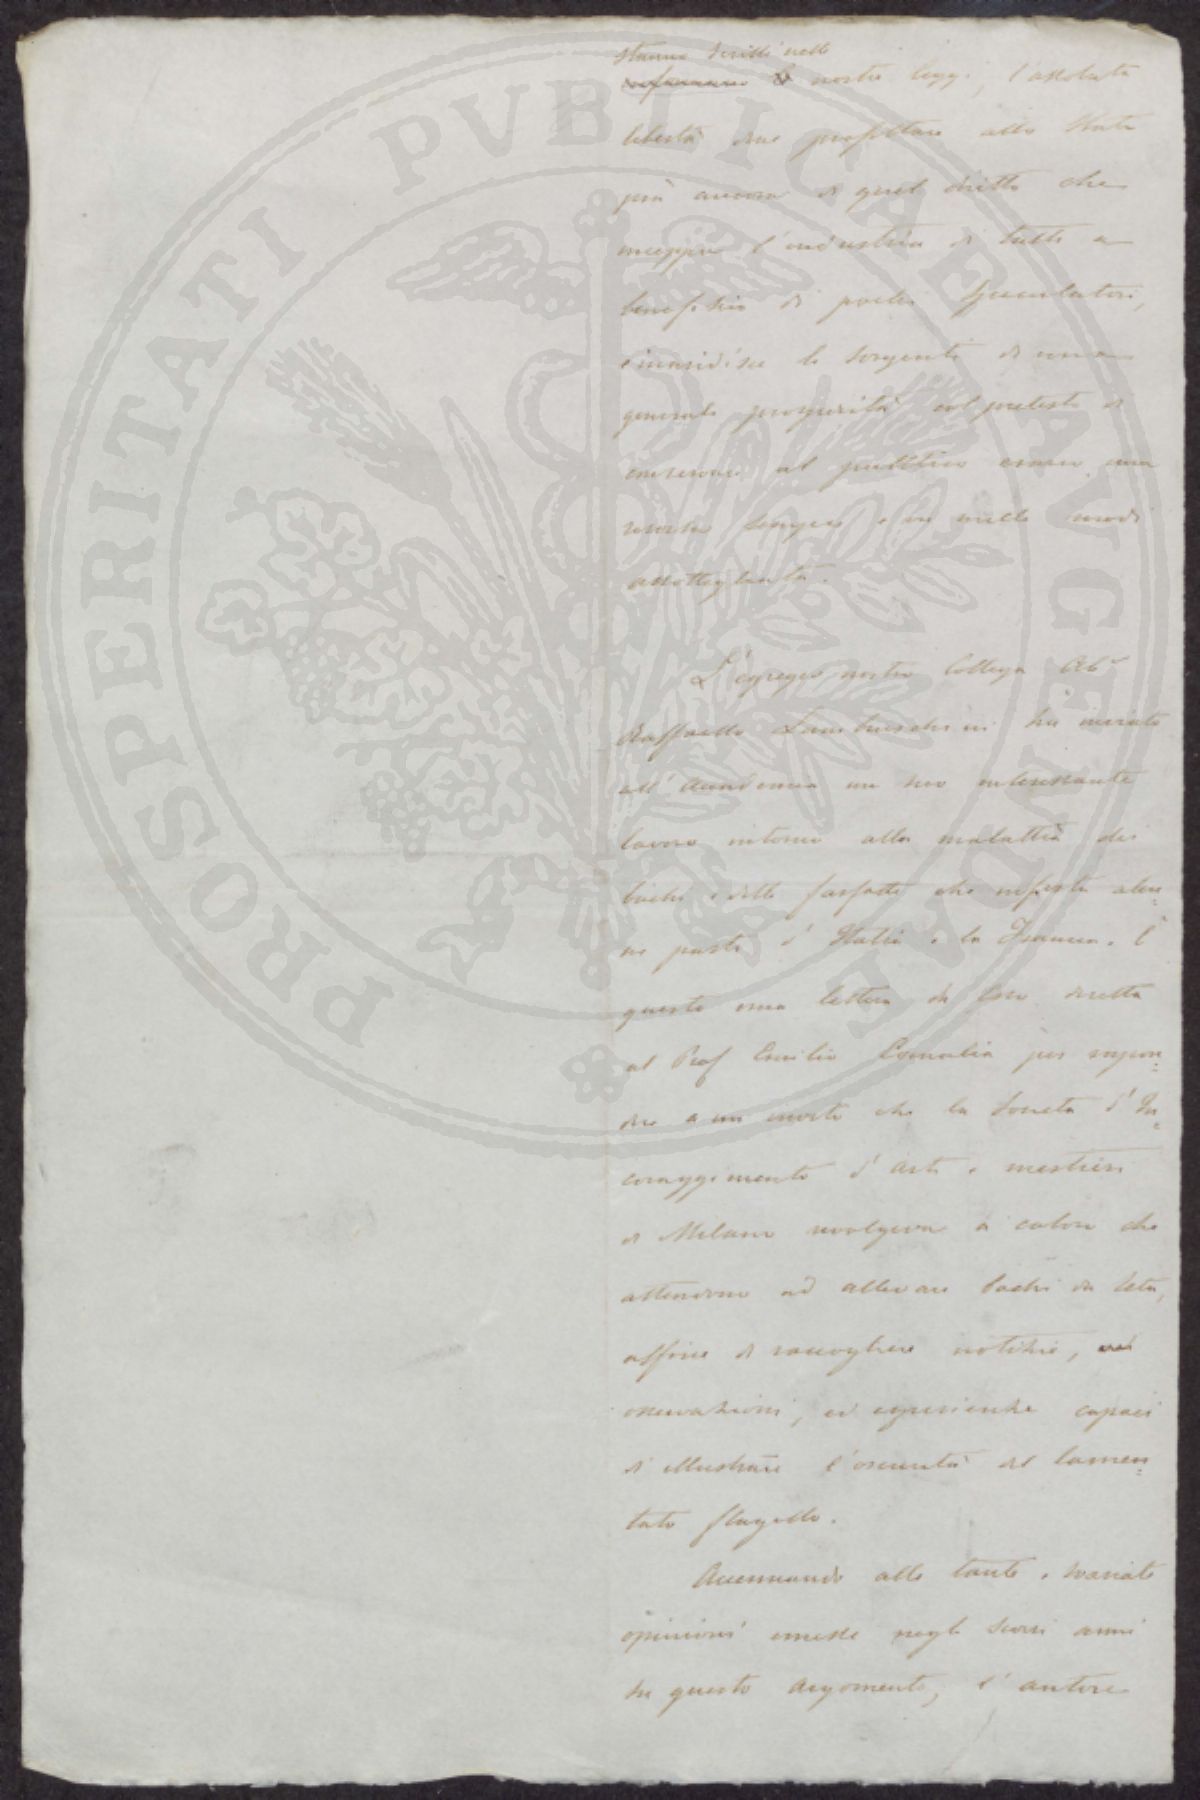 stanno scritti nelle
le nostre leggi, l'assoluta
libertà due profittare allo Stato
più ancora di quel dritto che
inceppa l'industria di tutti a
benefizio di pochi speculatori,
e inaridisce le sorgenti di una
generale prosperità col pretesto di
conservare al pubblico erario una
risorsa sempre e in mille modi
assottigliata.
L'egregio nostro Collega Ab.e
Raffaello Lambruschini ha inviato
all'Accademia un suo interessante
lavoro intorno alla malattia dei
bachi e delle farfalle che infesta alcu=
ne parti d'Italia e la Francia. È
questo una lettera da Esso diretta
al Prof Emilio Cornalia per rispon=
dere a un invito che la Società d'In=
coraggimento d'arti e mestieri
di Milano rivolgeva a coloro che
attendono ad allevare bachi da seta,
affine di raccogliere notizie,
osservazioni, ed esperienze capaci
d'illustrare l'oscurità del lamen=
tato flagello.
Accennando alle tante e svariate
opinioni emesse negli scorsi anni
su questo argomento, l'autore
PROSPERITATI PUBLICAE AUGENDAE